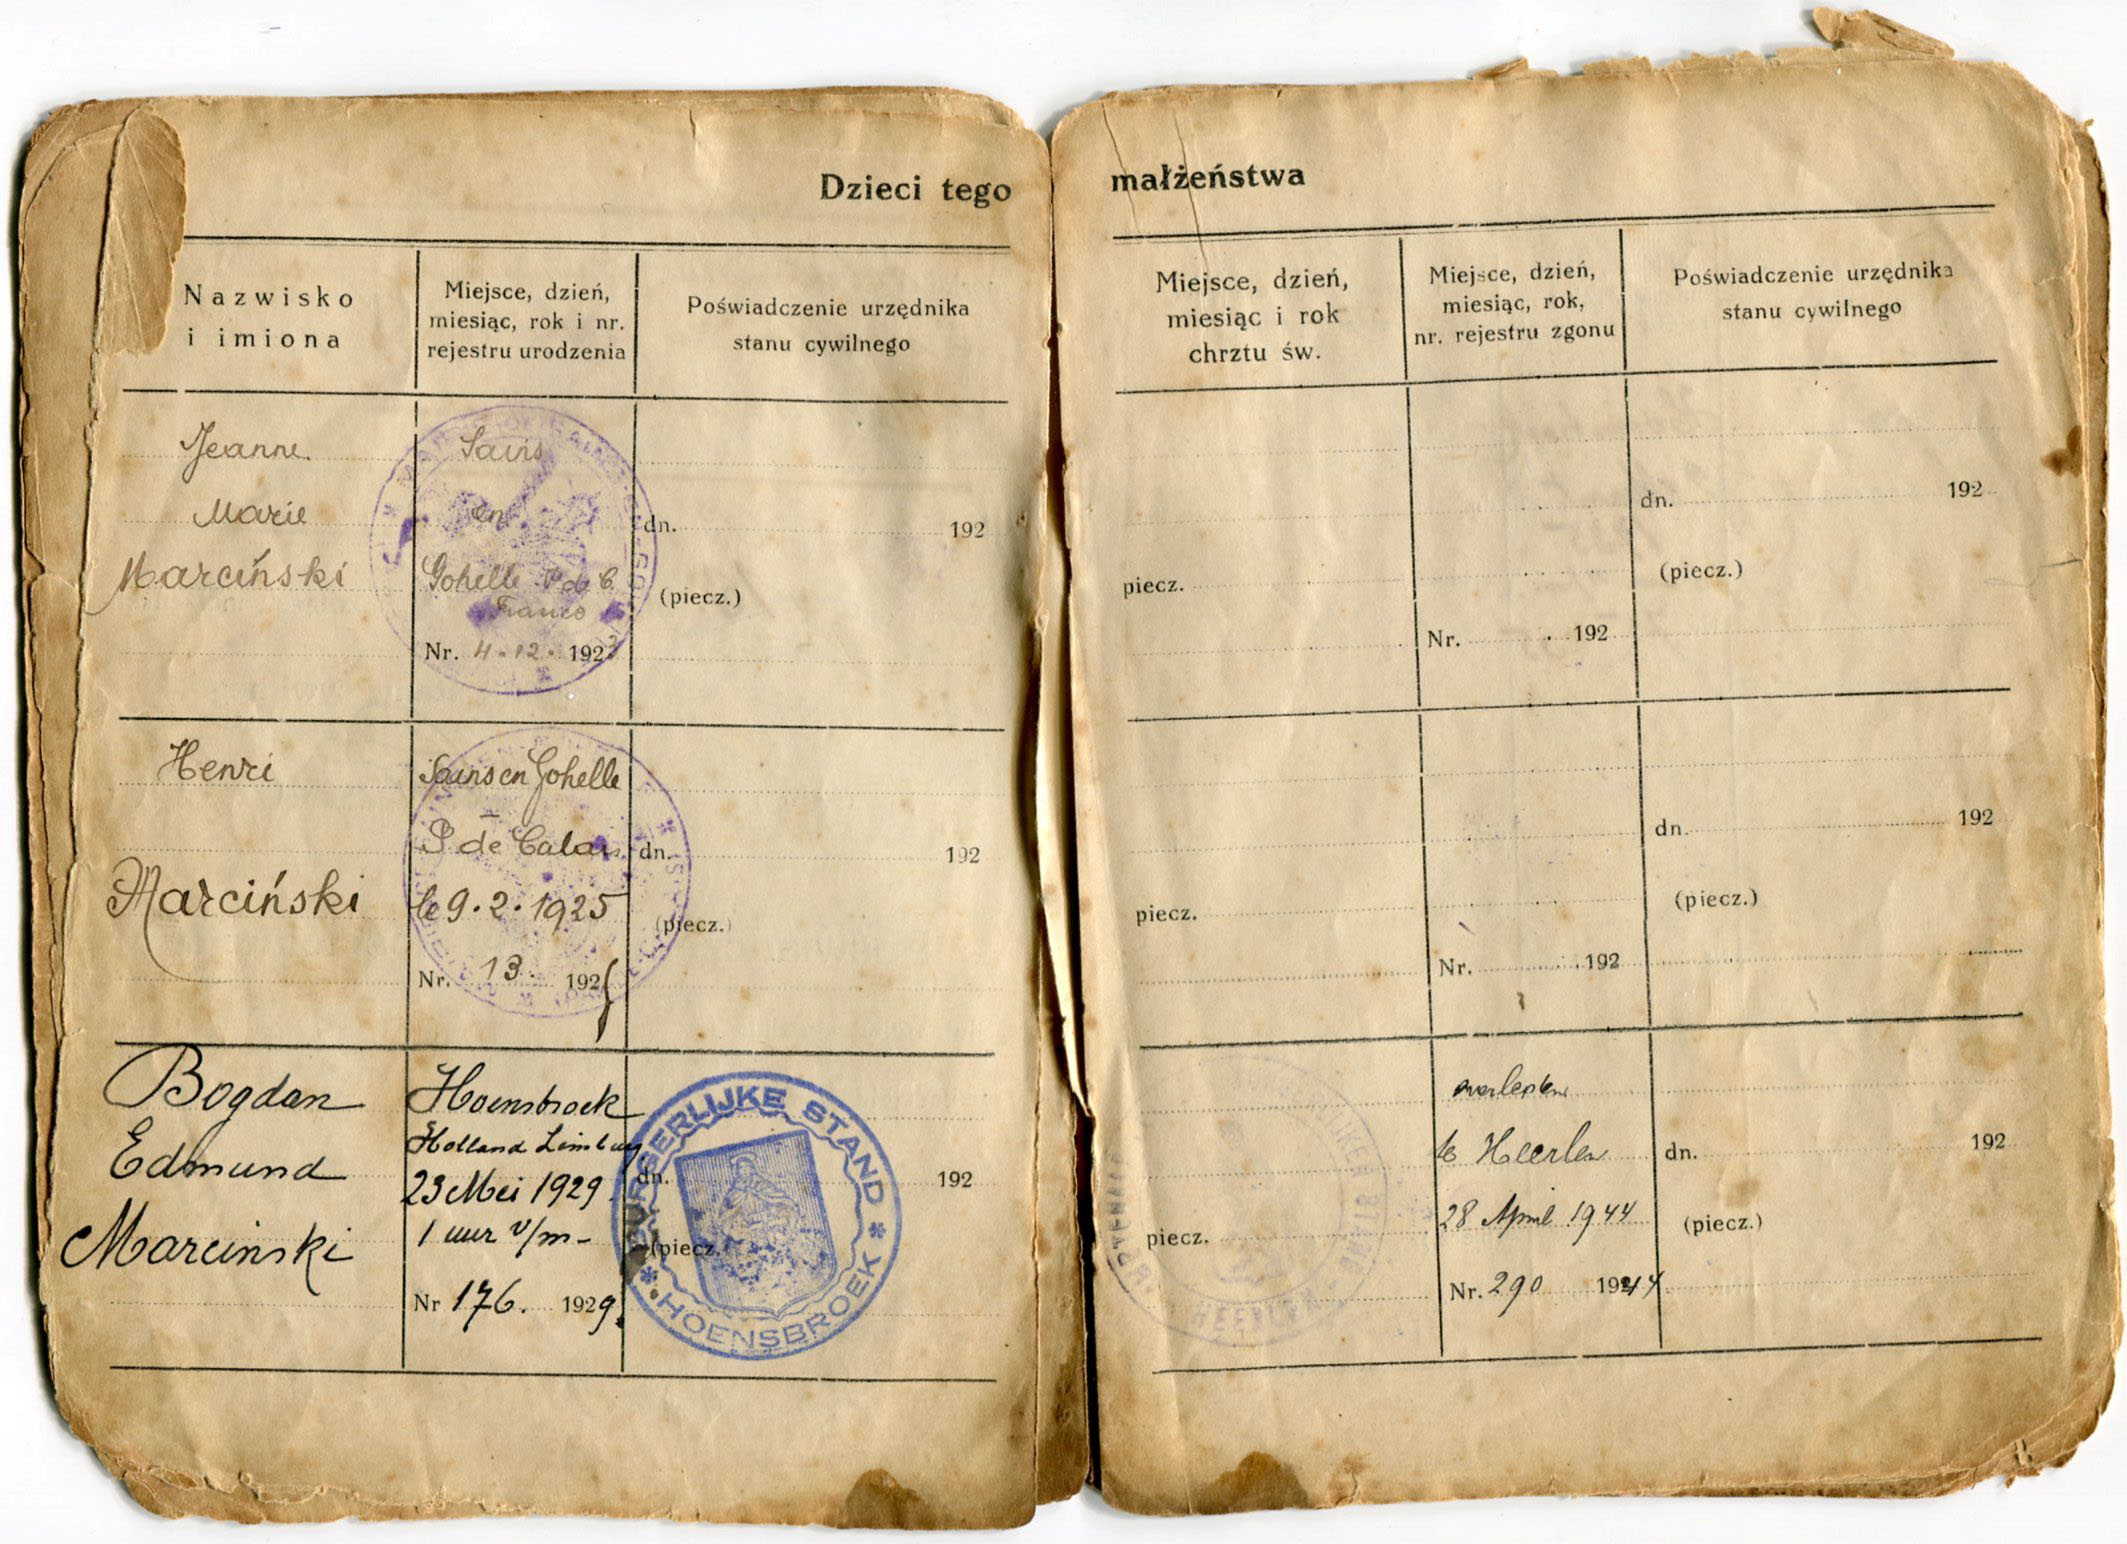 Dzieci tego małżeństwa
Nazwisko
i imiona
Miejsce, dzień,
miesiąc, rok i nr.
rejestru urodzenia
Poświadczenie urzędnika
stanu cywilnego
Miejsce, dzień,
miesiąc i rok
chrztu św.
Miejsce, dzień,
miesiąc, rok,
nr. rejestru zgonu
Poświadczenie urzędnika
stanu cywilnego
Jeanne
Marie
Marciński
Sains
en
Gohelle P. de C.
France
Nr. 4.12. 1923
dn. 192
(piecz.)
piecz.
Nr. 192
dn. 192
(piecz.)
Henri
Marciński
Sains en Gohelle
P de Calais
le 9.2.1925
Nr. 13 1925
dn. 192
(piecz.)
piecz.
Nr. 192
dn. 192
(piecz.)
Bogdan
Edmund
Marcinski
Hoensbroek
Holland Limburg
23 Mei 1929
1 uur v/m-
Nr 176. 1929.
dn. 192
(piecz.
BURGERLIJKE STAND
* HOENSBROEK *
piecz.
HEERLEN
overleden
te Heerlen
28 April 1944
Nr. 290 1944
dn. 192
(piecz.)